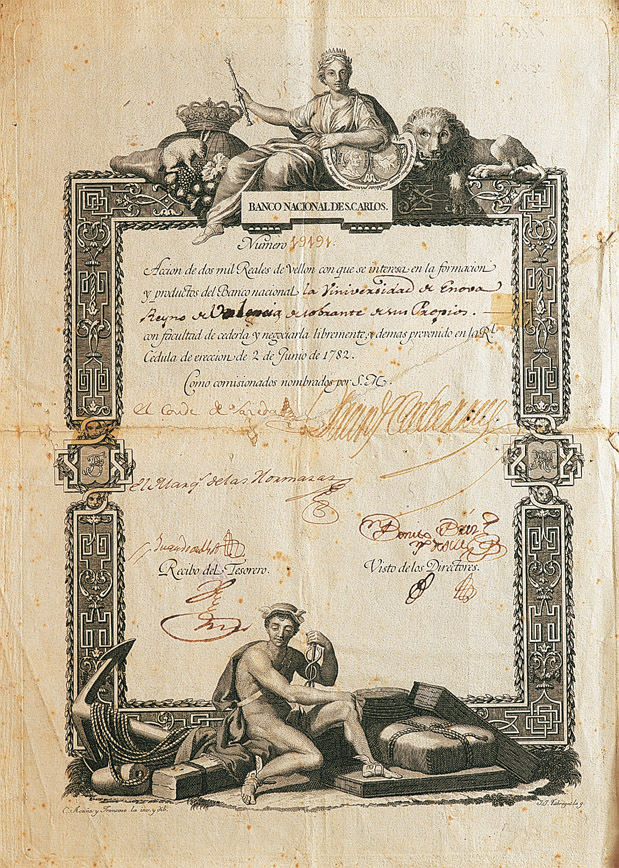 BANCO NACIONAL DE S. CARLOS.
Número 19191.
Accion de dos mil Reales de Vellon con que se interesa en la formacion
y productos del Banco nacional la Vniversidad de Enova
Reyno de Valencia de sobrante de sus Propios.
con facultad de cederla y negociarla libremente, y demas prevenido en la Rl.
Cedula de ereccion de 2 de Junio de 1782.
Como comisionados nombrados por S. M.
El Conde de
El Marqs. de las Hormazas
Benito
Recibo del Tesorero.
Visto de los Directores.